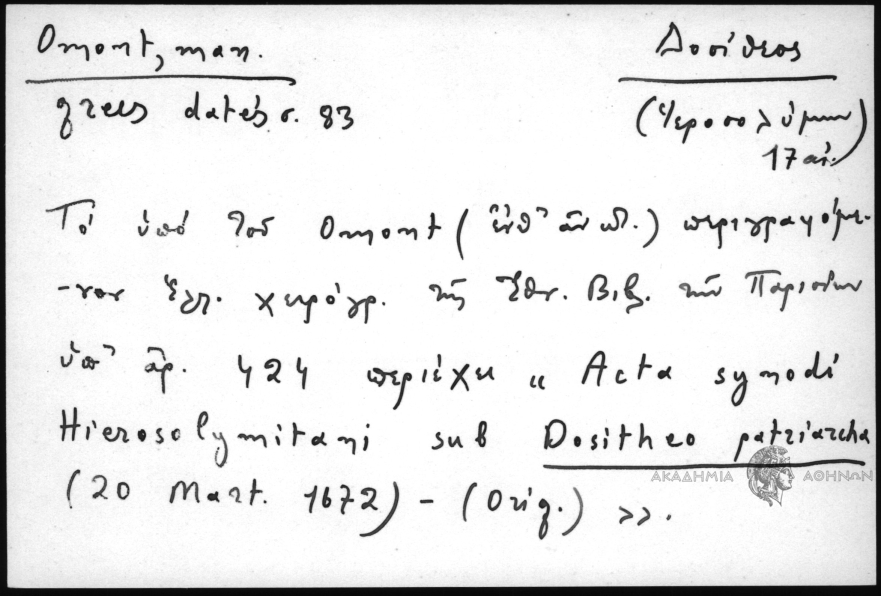 Omont, man. Δοσίθεος
grecs datés σ. 83 (Ἱεροσολύμων)
17 αἰ.
Τό ὑπό τοῦ Omont (ἔνθ' ἀν ωτ.) περιγραφόμε-
-νον Ἑλλ. χειρόγρ. τῆς Ἐθν. Βιβ. τῶν Παρισίων
ὑπ' ἀρ. 424 περιέχει „ Acta synodi
Hierosolymitani sub Dositheo patriarcha
(20 Mart. 1672) - (Orig.) >>.
ΑΚΑΔΗΜΙΑ ΑΘΗΝΩΝ